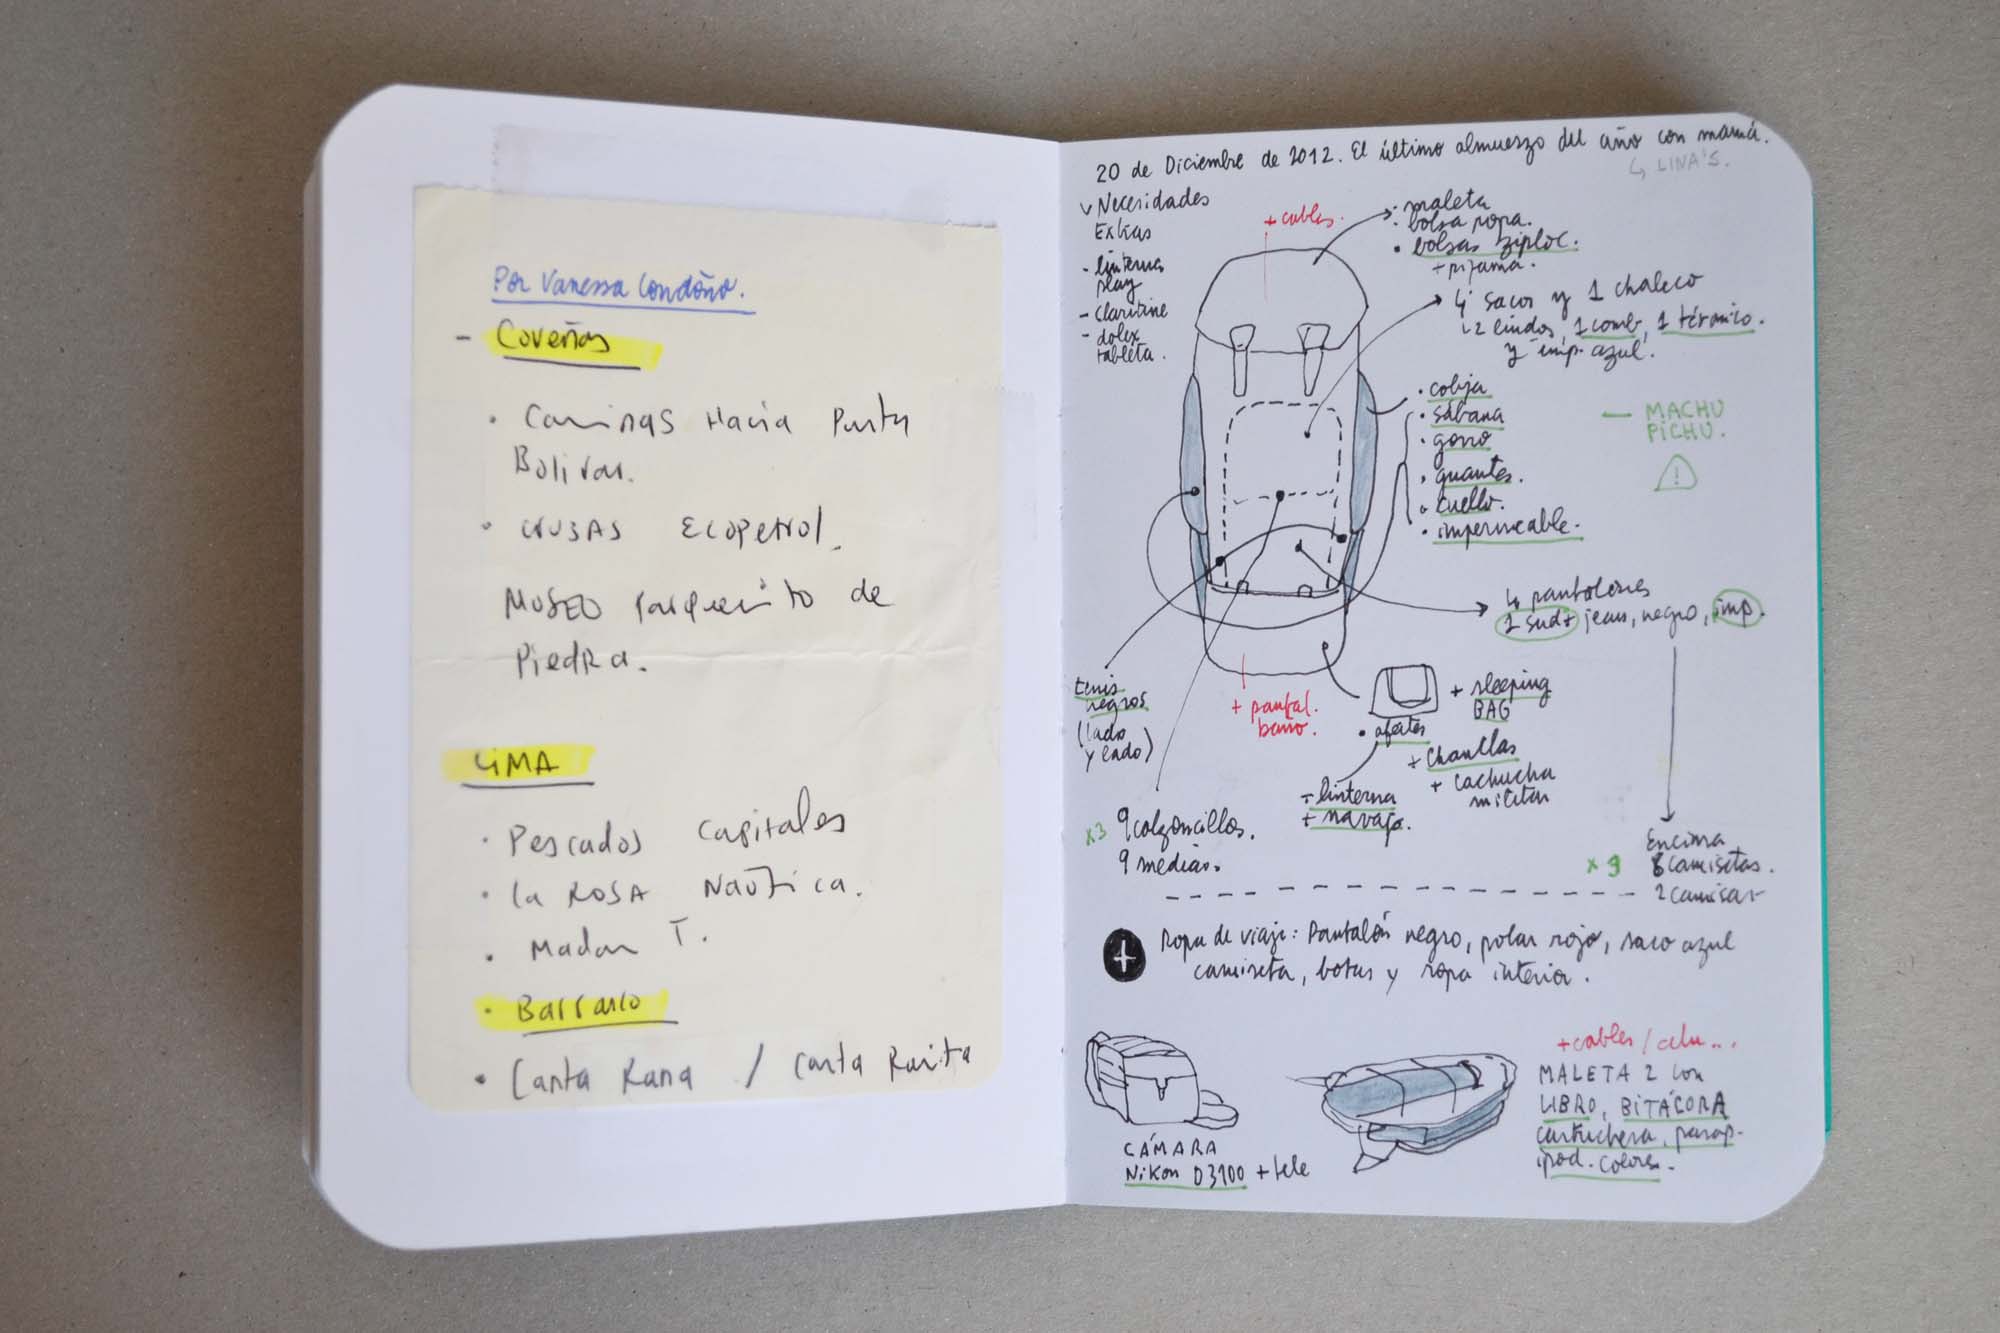 Por Vanessa Londoño.
- Coveñas
• Caminas Hacia Punta
Bolivar.
• CRUZAS Ecopetrol.
MUSEO Parquecito de
Piedra.
LIMA
• Pescados Capitales
• La ROSA NáuTica.
• Madam T.
• Barranco
• Canta Rana / Canta Ranita
20 de Diciembre de 2012. El último almuerzo del año con mamá.
↳ LINA'S.
✓ Necesidades
Extras
- linterna
play
- Claritine
- dolex
tableta.
+ cables.
• maleta
• bolsa ropa.
• bolsas ziploc.
+ pijama.
4 sacos y 1 chaleco
↳ 2 lindos, 1 comb, 1 térmico.
y imp. azul.
• cobija
• sábana
• gorro
• guantes.
• cuello.
• impermeable.
— MACHU
PICHU.
!
4 pantalones
1 sudt jeans, negro, imp.
tenis
negros
(lado
y lado)
+ pantal.
baño.
+ sleeping
BAG
•
+ chanclas
+ cachucha
militar
+ linterna
+ navaja.
x3 9 calzoncillos.
9 medias.
Encima
x 9 camisetas.
2 camisas
+ Ropa de viaje: Pantalón negro, polar rojo, saco azul
camiseta, botas y ropa interior.
CÁMARA
Nikon D3100 + tele
+ cables / celu...
MALETA 2 con
LIBRO, BITÁCORA
cartuchera, parap-
ipod. colores.